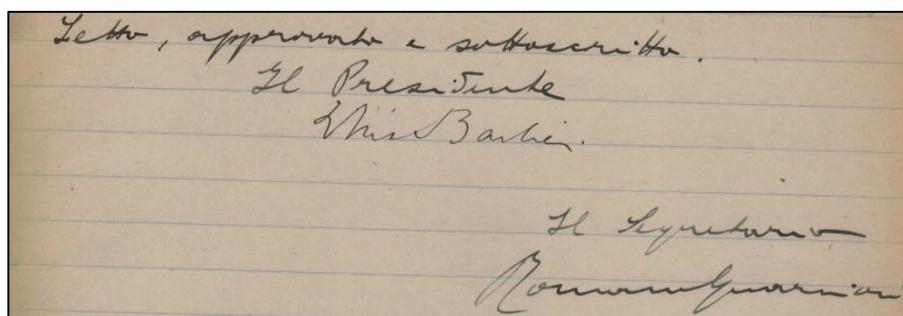 Letto, approvato e sottoscritto.
Il Presidente
Barbieri.
Il Segretario
Romano Guarnieri